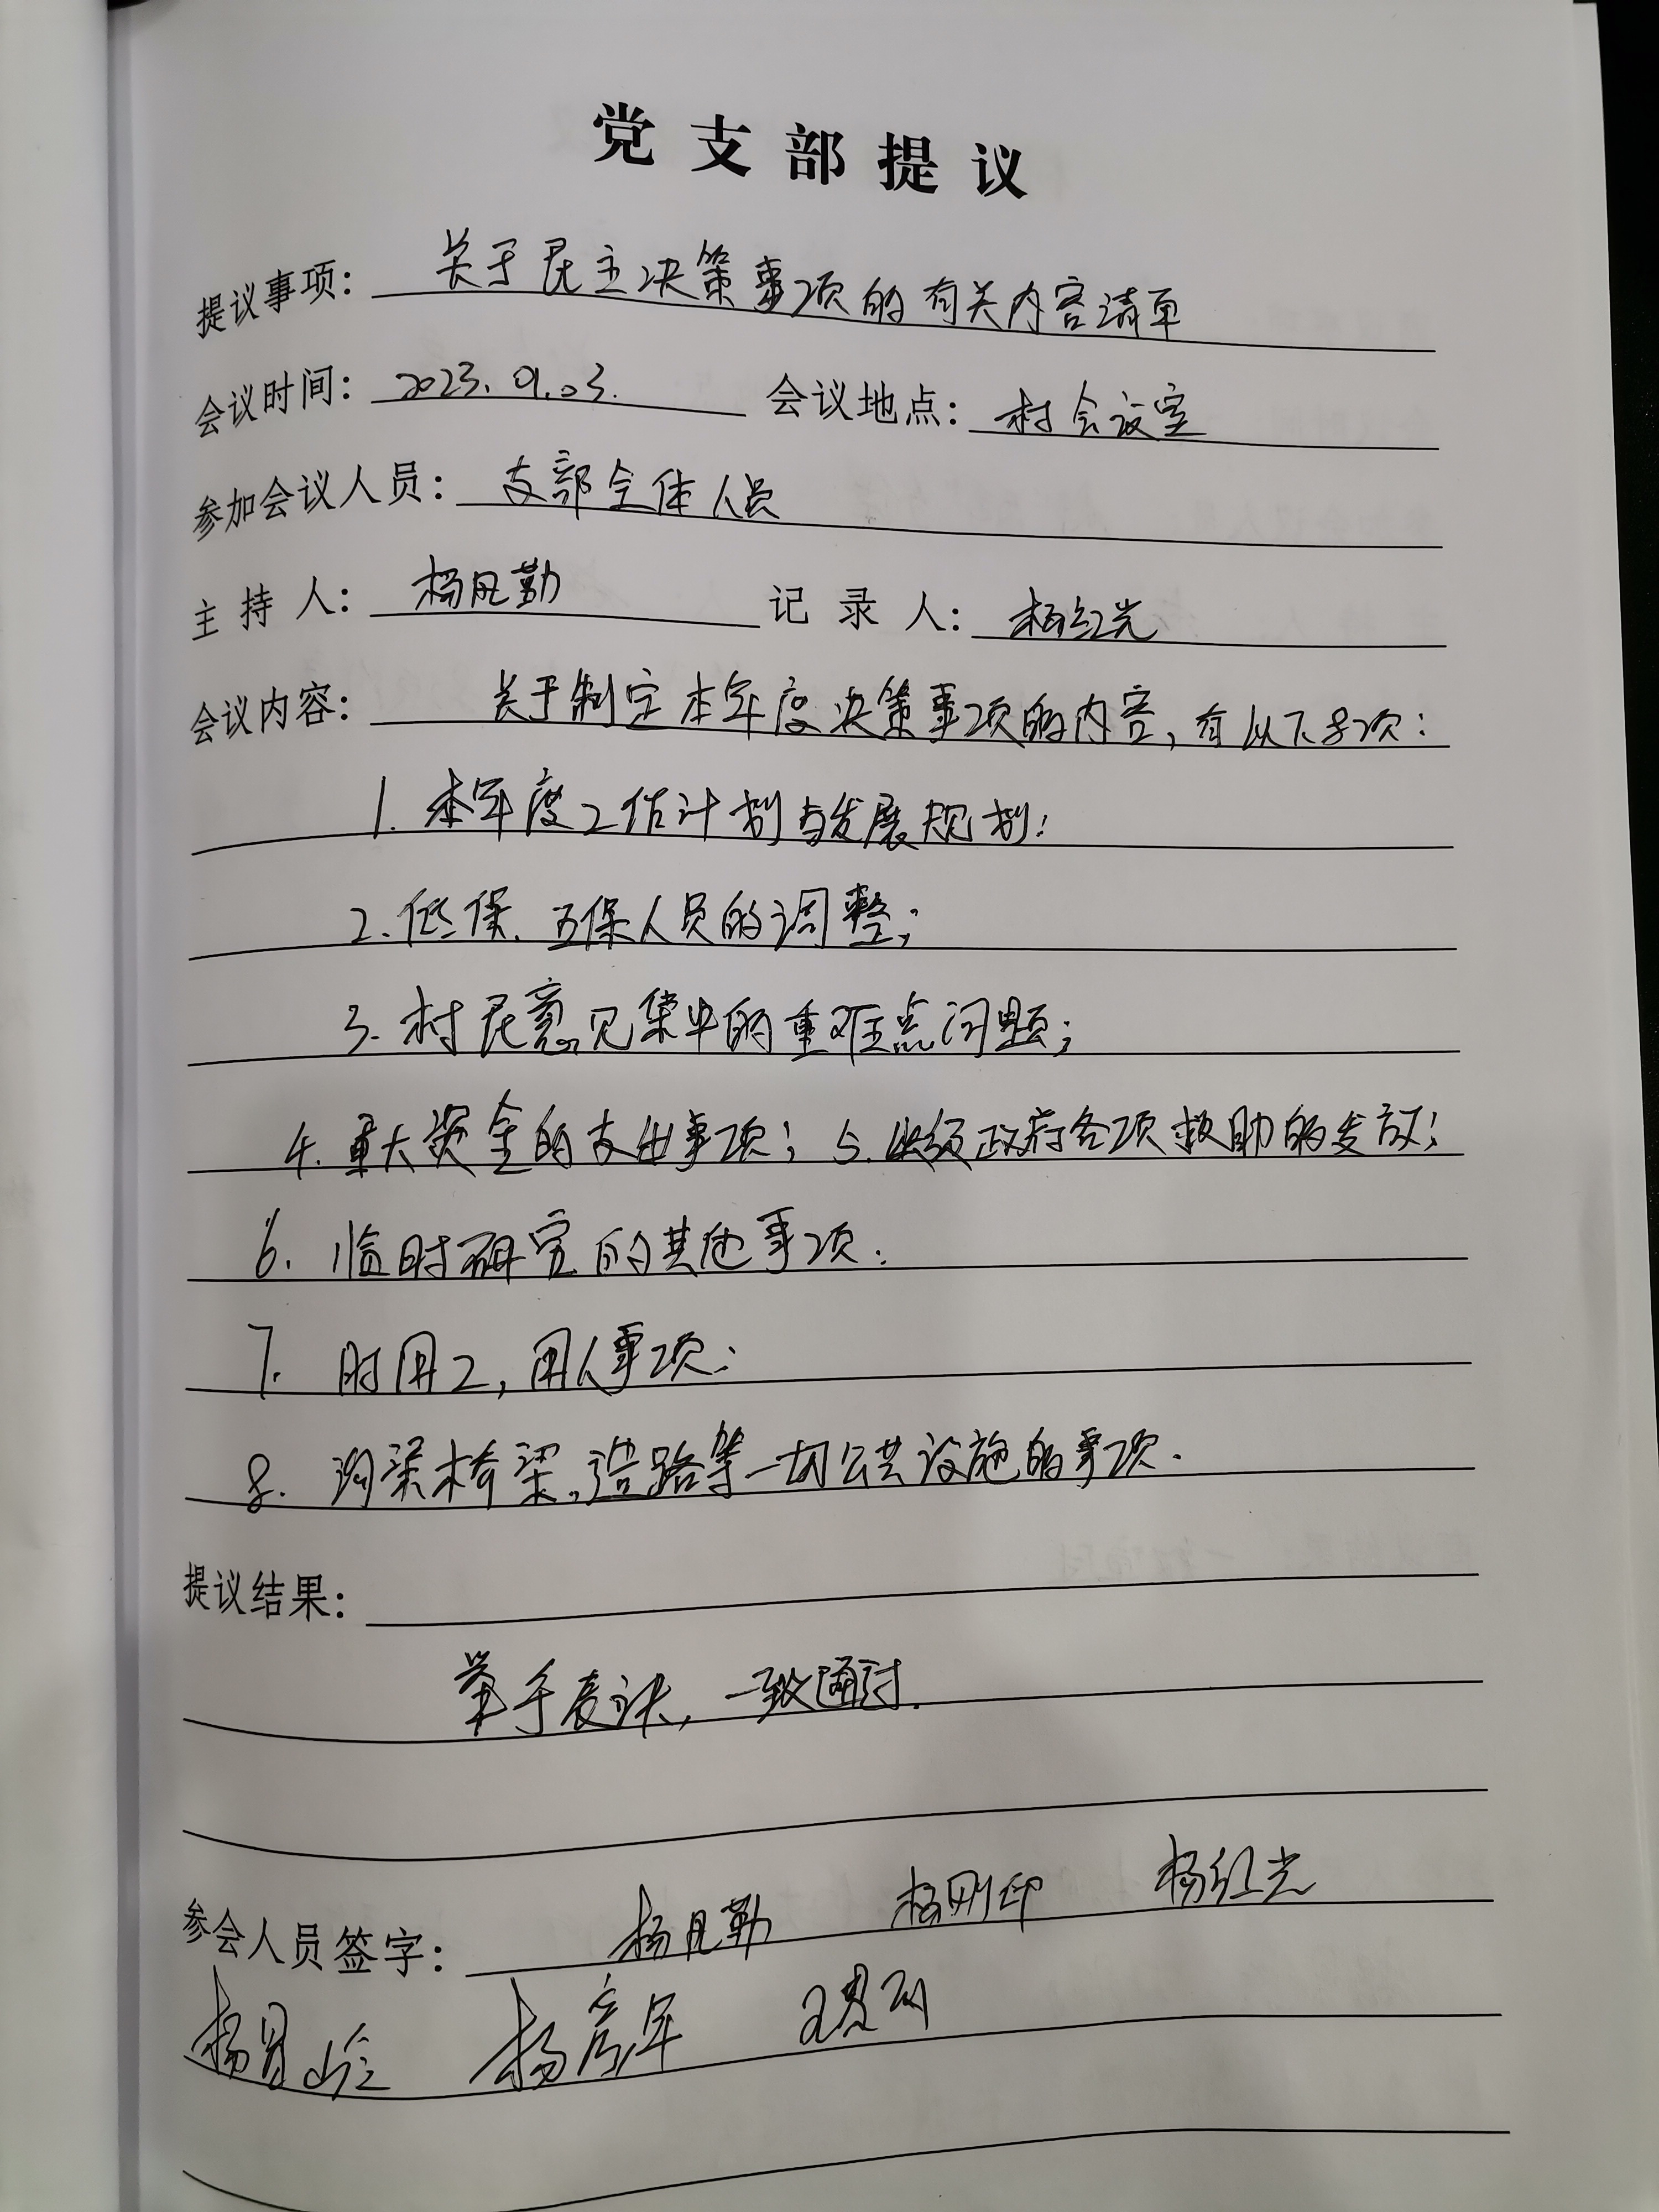 党支部提议
提议事项：关于民主决策事项的有关内容清单
会议时间：2023.01.03. 会议地点：村会议室
参加会议人员：支部全体人员
主持人：杨凡勤 记录人：杨红光
会议内容：关于制定本年度决策事项的内容，有以下8项：
1. 本年度工作计划与发展规划；
2. 低保、五保人员的调整；
3. 村民意见集中的重难点问题；
4. 重大资金的支出事项；5. 政府各项救助的发放；
6. 临时研究的其他事项：
7. 时用工，用人事项：
8. 沟渠桥梁，道路等一切公共设施的事项.
提议结果：
举手表决，一致通过.
参会人员签字：杨凡勤 杨刚印 杨红光
杨 杨彦军